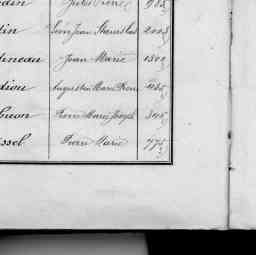 din Jules Pierre 985
tin Louis Jean Stanislas 2003
tineau Jean Marie 1800
dion Augustin Marie Pierre 485
Pierre Marie Joseph 345
ssel Pierre Marie 775